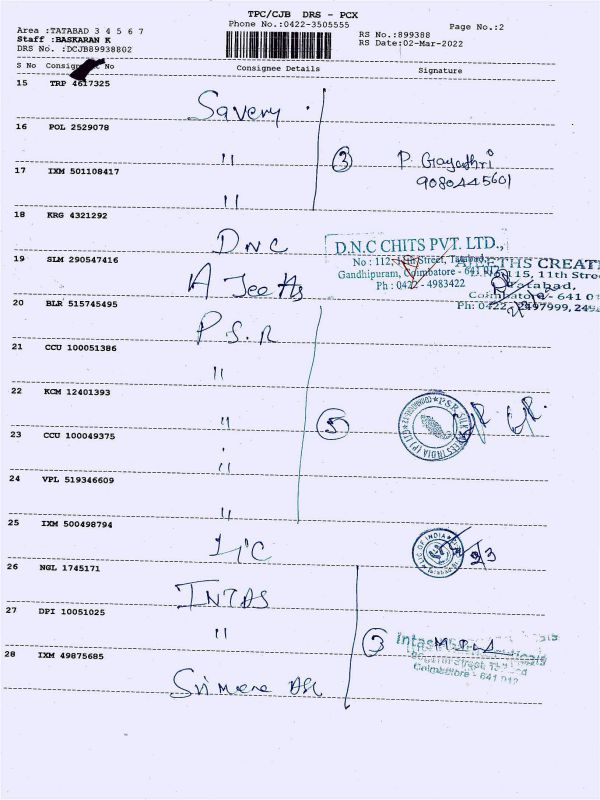 TPC/CJB DRS - PCX
Phone No.:0422-3505555
Page No.:2
Area :TATABAD 3 4 5 6 7
Staff :BASKARAN K
DRS No. :DCJB89938802
RS No.:899388
RS Date:02-Mar-2022
S No Consign No Consignee Details Signature
15 TRP 4617325
Savery
16 POL 2529078
" 3 P. Gayathri
9080445601
17 IXM 501108417
"
18 KRG 4321292
D.N.C
D.N.C CHITS PVT. LTD.,
No : 112, 11th Street, Tatabad,
Gandhipuram, Coimbatore - 641 012
Ph : 0422 - 4983422
19 SLM 290547416
CREATI
115, 11th Stre
Tatabad,
Coimbatore - 641 0
Ph: 0422-2497999, 249
20 BLR 515745495
P.S.R
21 CCU 100051386
"
22 KCM 12401393
" 5
PSR SILK INDIA (P) LTD
23 CCU 100049375
"
24 VPL 519346609
"
25 IXM 500498794
LIC
OF INDIA
23
26 NGL 1745171
INTAS
27 DPI 10051025
" 3
Intas
Coimbatore - 641 012
28 IXM 49875685